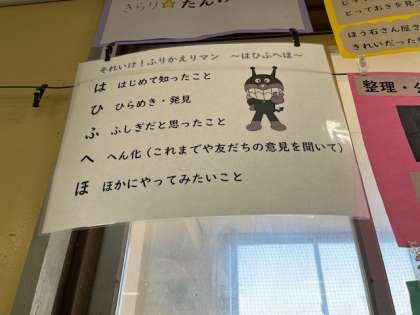 きらり☆たんけ
とっておきを見
ほう石さん屋さ
きれいだった
それいけ!ふりかえりマン ～はひふへほ～
は はじめて知ったこと
ひ ひらめき・発見
ふ ふしぎだと思ったこと
へ へん化(これまでや友だちの意見を聞いて)
ほ ほかにやってみたいこと
整理・分